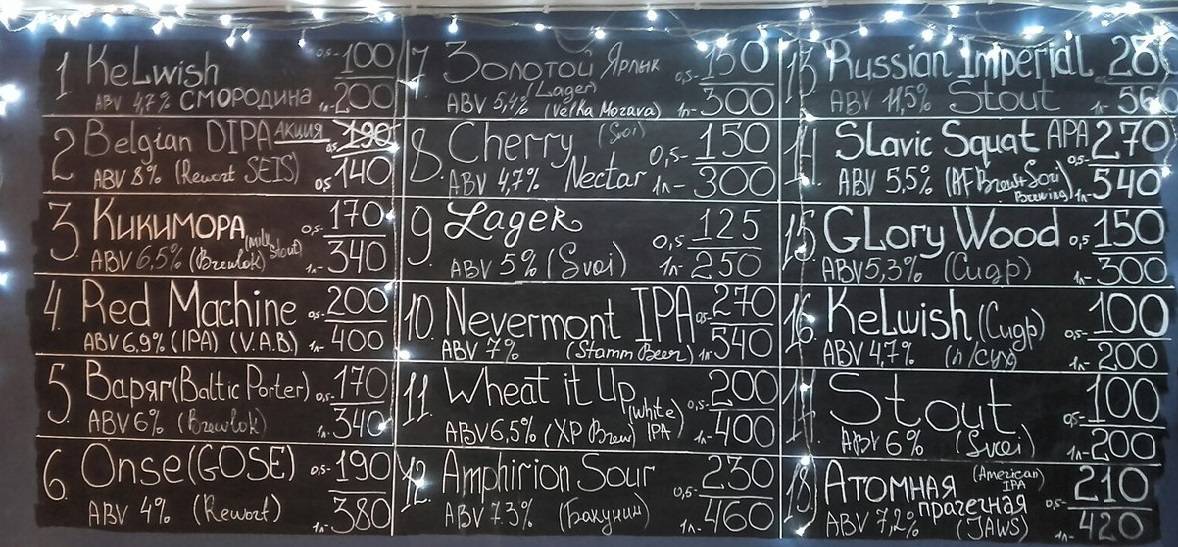 1 KeLwish 0,5- 100
ABV 4,7% СМОРОДИНА 1л- 200
2 Belgian DIPA АКЦИЯ 0,5 190
ABV 8% (Rewort SEIS) 0,5 140
3. Кикимора 0,5- 170
ABV 6,5% (Brewlok) (Milk Stout) 1л- 340
4. Red Machine 0,5- 200
ABV 6,9% (IPA) (V.A.B.) 1л- 400
5. Варяг (Baltic Porter) 0,5- 170
ABV 6% (Brewlok) 1л- 340
6. Onse (GOSE) 0,5- 190
ABV 4% (Rewort) 1л- 380
7 Золотой Ярлык 0,5- 150
(Lager)
ABV 5,4% (Velka Morava) 1л- 300
8. Cherry (Svoi) 0,5- 150
ABV 4,7% Nectar 1л- 300
9. Lager 0,5- 125
ABV 5% (Svoi) 1л- 250
10. Nevermont IPA 0,5- 270
ABV 7% (Stamm Beer) 1л- 540
11. Wheat it Up 0,5- 200
(White IPA)
ABV 6,5% (XP Brew) 1л- 400
12. Amphirion Sour 0,5- 230
ABV 7.3% (Бакунин) 1л- 460
13 Russian Imperial 280
ABV 11,5% Stout 1л- 560
14. Slavic Squat APA 0,5- 270
ABV 5,5% (AF Brew+Sori Brewing) 1л- 540
15 GLory Wood 0,5 150
ABV 5,3% (Сидр) 1л- 300
16. KeLwish (Сидр) 0,5- 100
ABV 4,7% (п/сух) 1л- 200
17. Stout 0,5- 100
ABV 6% (Svoi) 1л- 200
18. Атомная (American IPA) 0,5- 210
прачечная
ABV 7,2% (JAWS) 1л- 420